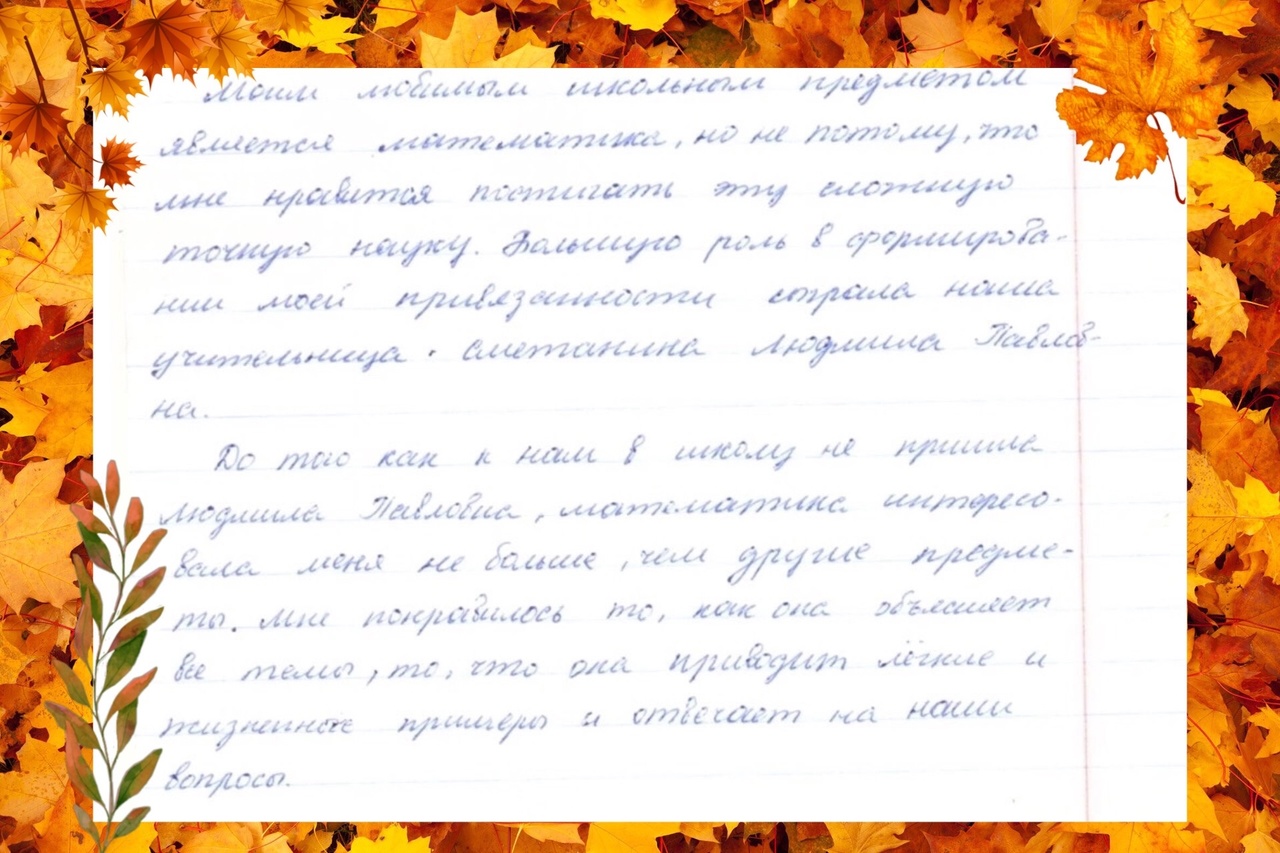 Моим любимым школьным предметом
является математика, но не потому, что
мне нравится постигать эту сложную
точную науку. Большую роль в сформирова-
нии моей привязанности сыграла наша
учительница - Сметанина Людмила Павлов-
на.
До того как к нам в школу не пришла
Людмила Павловна, математика интересо-
вала меня не больше, чем другие предме-
ты. Мне понравилось то, как она объясняет
все темы, то, что она приводит лёгкие и
жизненные примеры и отвечает на наши
вопросы.